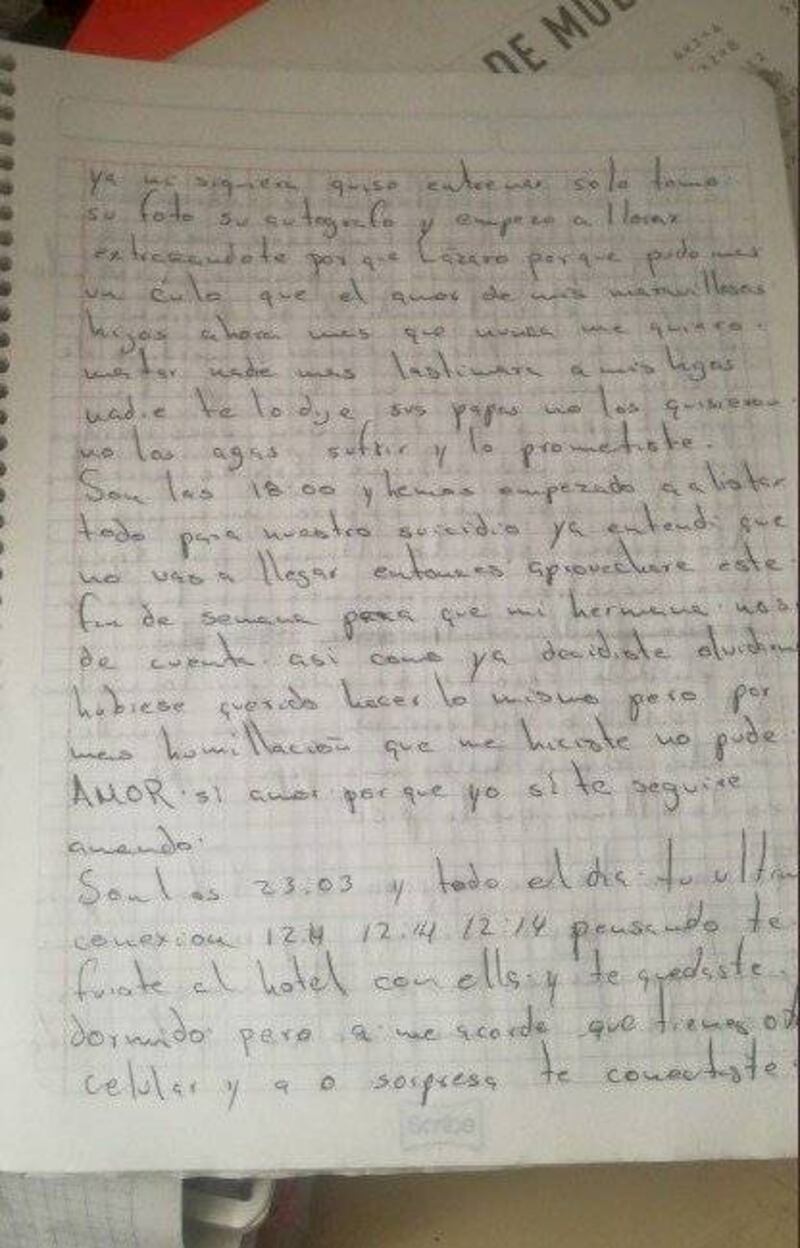 DE MUE
ya ni siquiera quiso entrenar solo tomo
su foto su autografo y empezo a llorar
extrañandote por que Lázaro porque pudo mas
un culo que el amor de mis maravillosos
hijos ahora mas que nunca me quiero
matar nadie mas lastimara a mis hijos
nadie te lo dije sus papas no los quisieron
no los agas sufrir y lo prometiste.
Son las 18:00 y hemos empezado a alistar
todo para nuestro suicidio ya entendi que
no vas a llegar entonces aprovechare este
fin de semana para que mi hermana nos
de cuenta asi como ya decidiste
hubiese querido hacer lo mismo pero por
mas humillación que me hiciste no pude
AMOR si amor por que yo si te seguire
amando.
Son las 23:03 y todo el dia tu
conexion 12:14 12:14 pensando te
fuiste al hotel con ella y te quedaste
dormido pero a me acorde que tienes
celular y a o sorpresa te conectaste
scribe